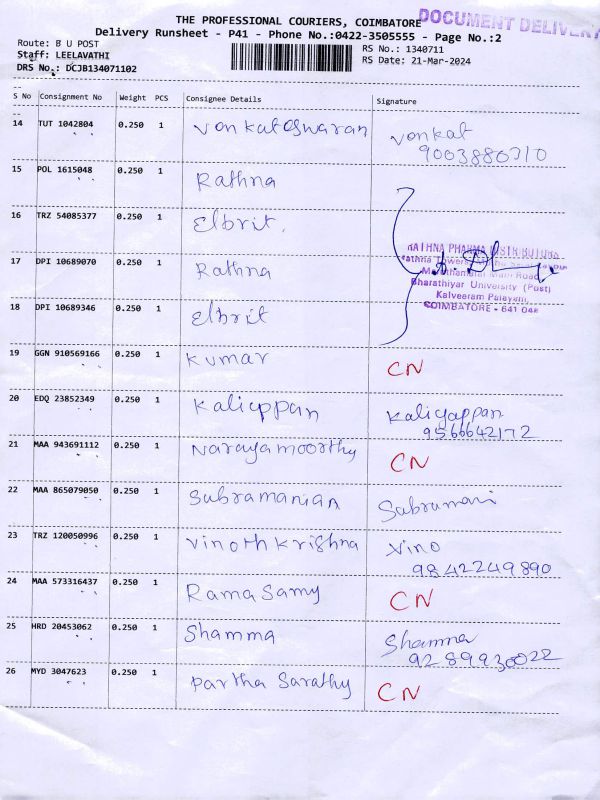 THE PROFESSIONAL COURIERS, COIMBATORE
DOCUMENT DELIVERY
Delivery Runsheet - P41 - Phone No.:0422-3505555 - Page No.:2
Route: B U POST
RS No.: 1340711
Staff: LEELAVATHI
RS Date: 21-Mar-2024
DRS No.: DCJB134071102
S No Consignment No Weight PCS Consignee Details Signature
14 TUT 1042804 0.250 1 Venkateswaran Venkat
9003880310
15 POL 1615048 0.250 1 Rathna
16 TRZ 54085377 0.250 1 Elbrit.
RATHNA PHARMA DISTRIBUTORS
17 DPI 10689070 0.250 1 Rathna
Rathna Towers
Main Road
Bharathiyar University (Post)
Kalveeram Palayam,
COIMBATORE - 641 046
18 DPI 10689346 0.250 1 Elbrit
19 GGN 910569166 0.250 1 Kumar CN
20 EDQ 23852349 0.250 1 Kaliappan Kaliyappan
9566642172
21 MAA 943691112 0.250 1 Narayamoorthy CN
22 MAA 865079050 0.250 1 Subramanian Subramani
23 TRZ 120050996 0.250 1 Vinoth Krishna Vino
9842249890
24 MAA 573316437 0.250 1 Rama Samy CN
25 HRD 20453062 0.250 1 Shamma Shamma
9289930022
26 MYD 3047623 0.250 1 Partha Sarathy CN